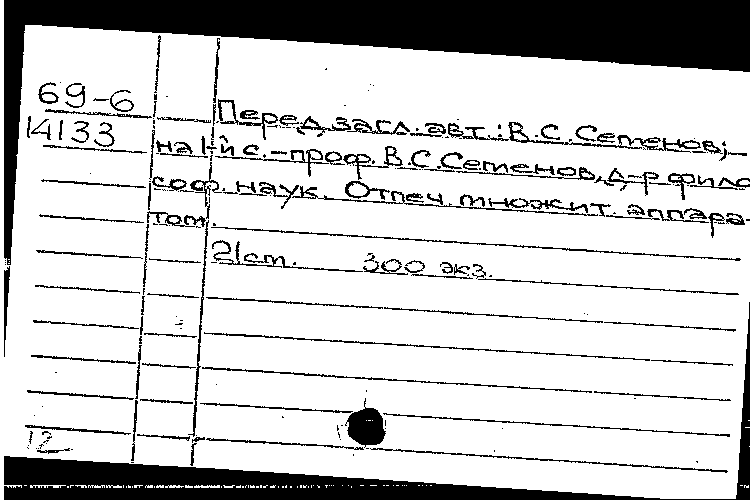 69-6
14133
Перед загл. авт.: В.С.Семенов;
на 1-й с. - проф. В.С.Семенов, д-р фило
соф. наук. Отпеч. множит. аппара-
том.
21 см. 300 экз.
12